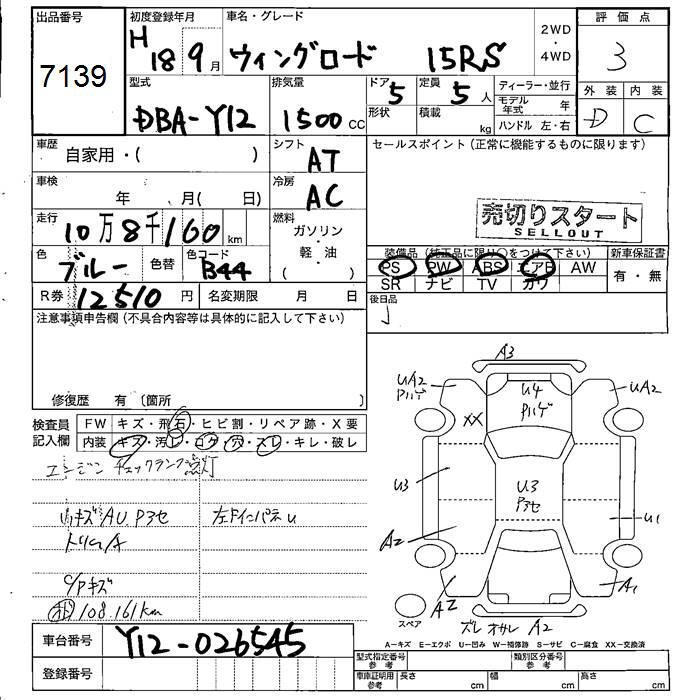 出品番号
7139
初度登録年月
H 18 9月
車名・グレード
ウィングロード 15RS
2WD
・
4WD
評価点
3
外装 内装
D C
型式
DBA-Y12
排気量
1500 CC
ドア
5
形状
定員
5人
積載
kg
ディーラー・並行
モデル年式 年
ハンドル 左・右
車歴
自家用・( )
シフト
AT
車検
年 月( 日)
冷房
AC
走行
10万8千160km
燃料
ガソリン
・
軽・油
( )
色
ブルー
色替
色コード
B44
R券 12510円
名変期限 月 日
セールスポイント(正常に機能するものに限ります)
売切りスタート
SELLOUT
装備品(純正品に限り○をつけて下さい)
PS PW ABS エアB AW
SR ナビ TV カワ
新車保証書
有・無
後日品
注意事項申告欄(不具合内容等は具体的に記入して下さい)
修復歴 有(箇所 )
検査員
記入欄
FW キズ・飛石・ヒビ割・リペア跡・X要
内装 キズ・汚レ・コゲ・穴・スレ・キレ・破レ
エンジンチェックランプ点灯
AU P3セ
左下インパネU
トリムA
C/Pキズ
108.161km
車台番号
Y12-026545
登録番号
A3
UA2
Pハゲ
U4
Pハゲ
UA2
XX
U3
U3
P3セ
U1
A2
A2
A1
スペア
ズレ オサレ A2
A-キズ E-エクボ U-凹み W-補修跡 S-サビ C-腐食 XX-交換済
型式指定番号
参考
類別区分番号
参考
車庫証明用
参考
長さ cm
幅 cm
高さ cm